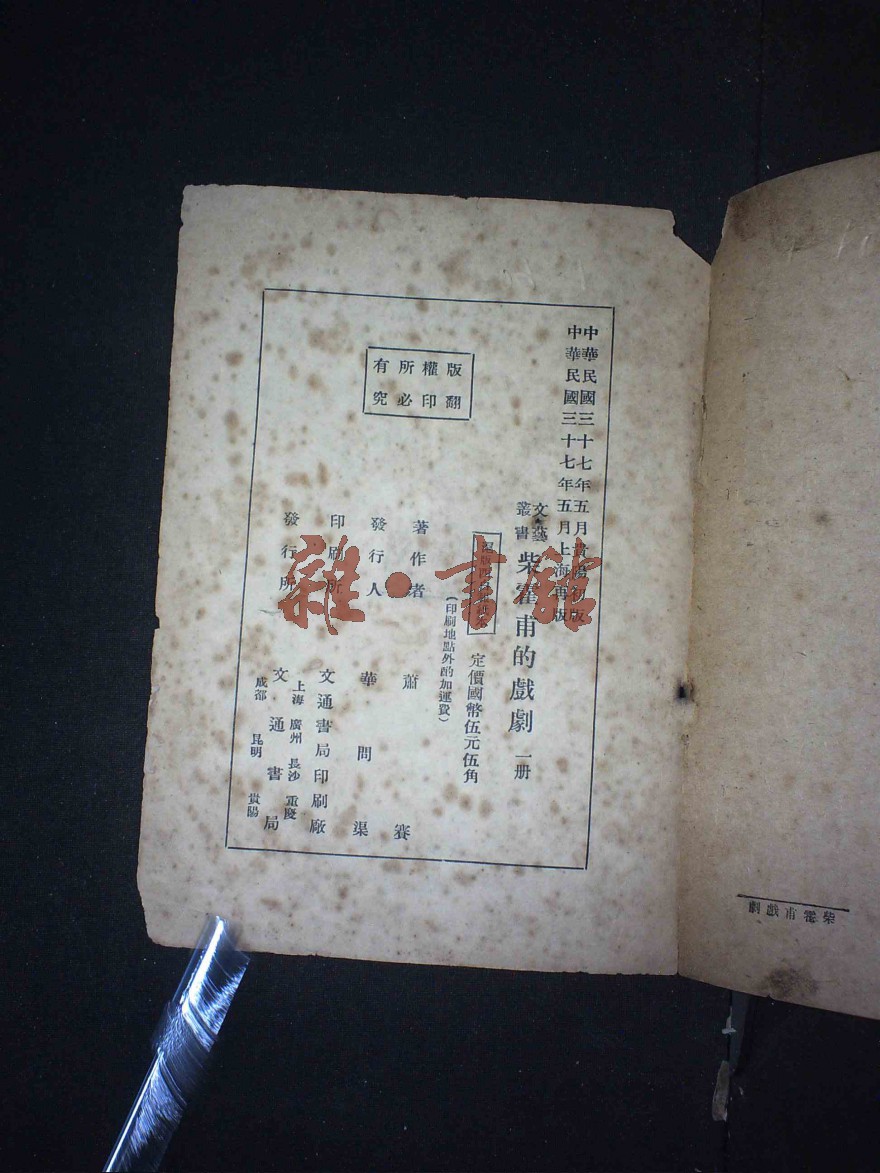 中華民國三十七年五月貴陽初版
中華民國三十七年五月上海再版
文藝叢書
柴霍甫的戲劇 一册
定價國幣伍元伍角
(印刷地點外酌加運費)
著作者 蕭賽
發行人 華問渠
印刷所 文通書局印刷廠
發行所 文通書局
上海 廣州 長沙 重慶
成都 昆明 貴陽
版權所有
翻印必究
雜·書館
柴霍甫戲劇